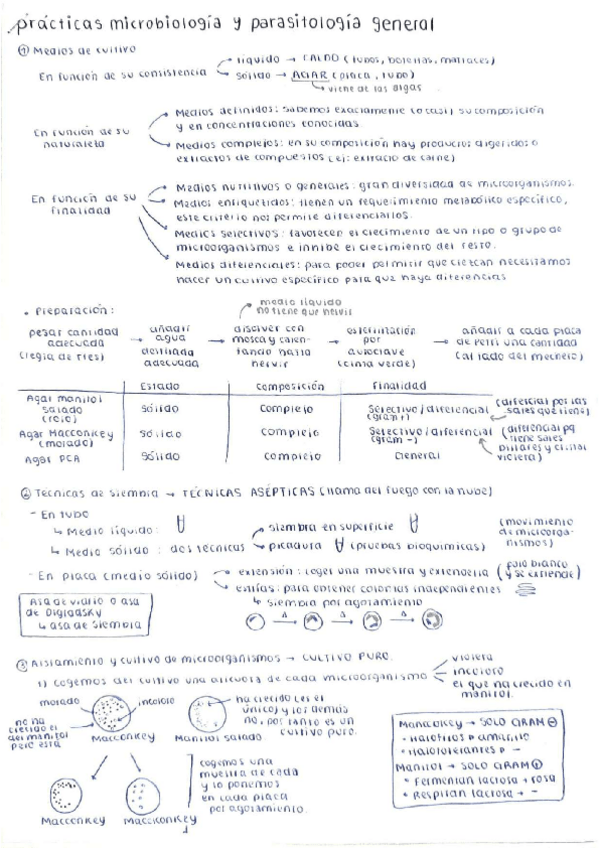 prácticas microbiología y parasitología general
① Medios de cultivo
En función de su consistencia
líquido → CALDO (tubos, botellas, matraces)
sólido → AGAR (placa, tubo)
viene de las algas
En función de su naturaleza
Medios definidos: sabemos exactamente (o casi) su composición
y en concentraciones conocidas
Medios complejos: en su composición hay productos digeridos o
extractos de compuestos (ej: extracto de carne)
En función de su
finalidad
Medios nutritivos o generales: gran diversidad de microorganismos.
Medios enriquecidos: tienen un requerimiento metabólico específico,
este criterio nos permite diferenciarlos.
Medios selectivos: favorecen el crecimiento de un tipo o grupo de
microorganismos e inhibe el crecimiento del resto.
Medios diferenciales: para poder permitir que crezcan necesitamos
hacer un cultivo específico para que haya diferencias
• Preparación:
medio líquido
no tiene que hervir
pesar cantidad
adecuada
(regla de tres)
→ añadir
agua
destilada
adecuada
→ disolver con
mosca y calen-
tando hasta
hervir
→ esterilización
por
autoclave
(cinta verde)
→ añadir a cada placa
de Petri una cantidad
(al lado del mechero)
Estado Composición Finalidad
Agar manitol
salado
(rojo)
sólido complejo Selectivo/diferencial
(gram+)
(diferencial por las
sales que tiene)
Agar MacConkey
(morado)
sólido complejo Selectivo/diferencial
(gram -)
(diferencial pq
tiene sales
biliares y cristal
violeta)
Agar PCA sólido complejo General
② Técnicas de siembra → TÉCNICAS ASÉPTICAS (llama del fuego con la nube)
- En tubo
↳ Medio líquido:
↳ Medio sólido: dos técnicas
siembra en superficie
picadura (pruebas bioquímicas)
(movimiento
de microorga-
nismos)
- En placa (medio sólido)
extensión: coger una muestra y extenderla
(palo blanco
y se extiende)
estrías: para obtener colonias independientes
↳ siembra por agotamiento
Asa de vidrio o asa
de Digralsky
↳ asa de siembra
③ Aislamiento y cultivo de microorganismos → CULTIVO PURO.
1) Cogemos del cultivo una alícuota de cada microorganismo
violeta
incoloro
el que ha crecido en
manitol.
morado
incoloro
no ha
crecido el
del manitol
pero está
MacConkey
Manitol salado
ha crecido (es el
único) y los demás
no, por tanto es un
cultivo puro.
cogemos una
muestra de cada
y lo ponemos
en cada placa
por agotamiento.
Macconkey
Macconkey
Manaconkey → SOLO GRAM ⊖
• Halófilos → amarillo
• Halotolerantes → -
Manitol → SOLO GRAM ⊕
• Fermentan lactosa → rosa
• Respiran lactosa → -